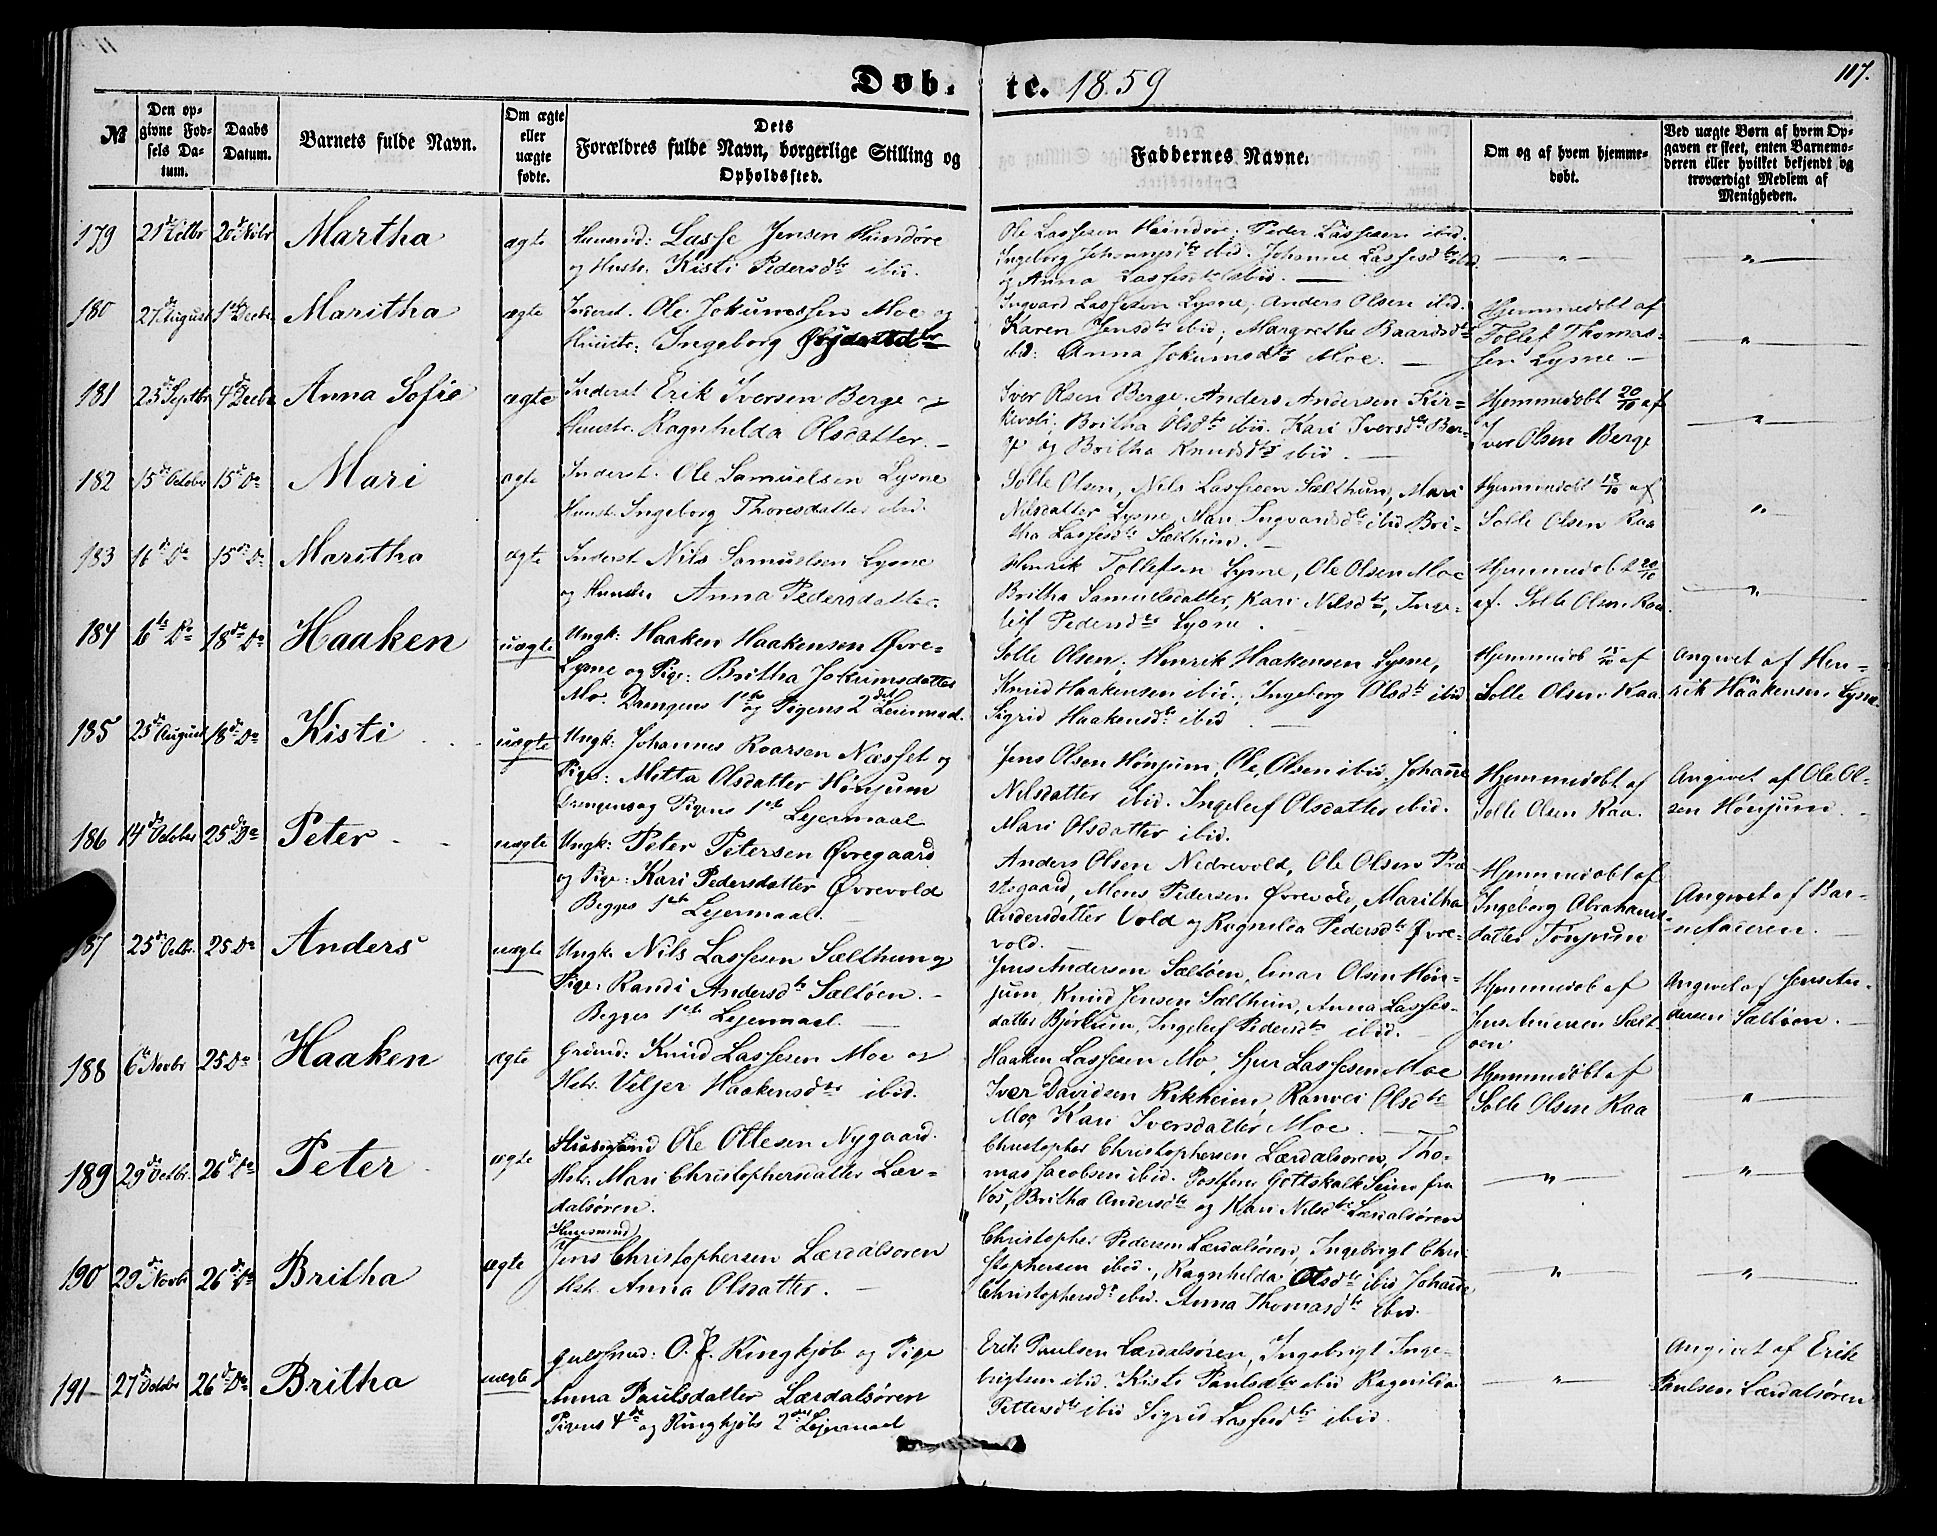 Døb- te. 1859
117.
№
Den op-
givne Fød-
sels Da-
tum.
Daabs
Datum.
Barnets fulde Navn.
Om ægte
eller
uægte
fødte.
Dets
Forældres fulde Navn, borgerlige Stilling og
Opholdssted.
Faddernes Navne.
Om og af hvem hjemme-
døbt.
Ved uægte Børn af hvem Op-
gaven er skeet, enten Barnemo-
deren eller hvilket bekjendt og
troværdigt Medlem af
Menigheden.
179 21de Octbr 20de Nvbr Martha ægte
Huusmd: Lasse Jensen Hundøre
og Hustr. Kisti Pedersdtr ibid.
Ole Lassesen Hundøre, Peder Lassesen ibid.
Ingeborg ibid. Johanne Lassesdtr ibid
og Anna Lassesdtr ibid.
180 27de August 1ste Decbr Maritha ægte
Inderst. Ole Jokumssen Moe og
Huustr: Ingeborg
Ingvard Lassesen Lysne, Anders Olsen ibid.
Karen Jensdtr ibid, Margrethe Baardsdtr
ibid: Anna Jokumsdtr Moe.
Hjemmedøbt af
Tollef Thomas-
sen Lysne
181 23de Septbr 4de Decbr Anna Sofie ægte
Inderst Erik Iversen Berge og
Huustr. Ragnhilda Olsdatter.
Iver Olsen Berge, Anders Andersen Kir-
kevoli, Britha Olsdtr ibid. Kari Iversdtr Ber-
ge og Britha Knudsdtr ibid.
Hjemmedøbt 20/10 af
Iver Olsen Berge
182 15de October 15de Do Mari ægte
Inderst. Ole Samuelsen Lysne
Huustr. Ingeborg Thoresdatter ibid.
Solle Olsen, Nils Lassesen Sælthun, Mari
Nilsdatter Lysne, Mari Ingvardsdtr ibid Bri-
tha Lassesdtr Sælthun.
Hjemmedøbt af
Solle Olsen Raa
183 16de Do 15de Do Maritha ægte
Inderst Nils Samuelsen Lysne
og Huustr Anna Pedersdatter.
Henrik Tollefsen Lysne, Ole Olsen Moe
Britha Samuelsdatter, Kari Nilsdtr, Inge-
leif Pedersdtr Lysne.
Hjemmedøbt 20/10
af. Solle Olsen Raa.
184 6te Do 18de Do Haaken uægte
Ungk: Haaken Haakensen Øvre-
Lysne og Pige: Britha Jokumsdatter
Mo. Drengens 1ste og Pigens 2det Leiermaal.
Solle Olsen, Henrik Haakensen Lysne,
Knud Haakensen ibid, Ingeborg Olsdtr ibid
Sigrid Haakensdtr ibid
Hjemmedøb af
Solle Olsen Raa
Angivet af Hen-
rik Haakensen Lysne.
185 25de August 18de Do Kisti uægte
Ungk: Johannes Roarsen Næsset og
Pige: Metta Olsdatter Hønjum
Drengens og Pigens 1ste Lejermaal
Jens Olsen Hønjum, Ole Olsen ibid, Johanne
Nilsdatter ibid. Ingeleif Olsdatter ibid.
Mari Olsdatter ibid.
Hjemmedøbt af
Solle Olsen Raa.
Angivet af Ole Ol-
sen Hønjum.
186 14de October 25de Do Peter uægte
Ungk: Peter Petersen Øvregaard
og Pige: Kari Pedersdatter Øvrevold
Begges 1ste Lejermaal.
Anders Olsen Nedrevold, Ole Olsen Præ-
stegaard, Mons Pedersen Øvrevold, Maritha
Andersdatter Vold og Ragnilda Pedersdtr Øvre-
vold.
Hjemmedøbt af
Ingeborg Abrahams-
datter Tønjum
Angivet af Bar-
nefaderen.
187 25de Octbr. 25 Do Anders uægte
Ungk. Nils Lassesen Sælthun og
Pige: Randi Andersdtr Sæltøen.
Begges 1ste Lejermaal.
Jens Andersen Sæltøen, Einar Olsen Høn-
jum, Knud Jensen Sælthun, Anna Lasses-
datter Bjørkum, Ingeleif Pedersdtr ibid.
Hjemmedøb af
Jens Andersen Sælt-
øen
Angivet af Jens An-
dersen Sæltøen.
188 6te Novbr 25 Do Haaken ægte
Grdmd: Knud Lassesen Moe og
Hstr. Veljer Haakensdtr ibid.
Haaken Lassesen Mo, Sjur Lassesen Moe
Iver Davidsen Rikheim Ranvei Olsdtr
Moe Kari Iversdatter Moe.
Hjemmedøbt af
Solle Olsen Raa
189 29de Octbr. 26de Do Peter ægte
Huusmand Ole Ottesen Nygaard.
Hstr. Mari Christophersdatter Lær-
dalsøren.
Christopher Christophersen Lærdalsøren, Tho-
mas Jacobsen ibid. Postfører Gottskalk Seim fra
Vos, Britha Andersdtr og Kari Nilsdtr Lærdalsøren
190 29de Novbr 26de Do Britha ægte
Huusmand
Jens Christophersen Lærdalsøren
Hstr. Anna Olsdatter.
Christopher Pedersen Lærdalsøren, Ingebrigt Chri-
stophersen ibid., Ragnhilda Olsdtr ibid Johanne
Christophersdtr ibid. Anna Thomasdtr ibid.
191 27de Octbr 26de Do Britha uægte
Guldsmed: O. P. Ringkjøb og Pige
Anna Paulsdatter Lærdalsøren
Pigens 4de og Ringkjøbs 2det Lejermaal
Erik Paulsen Lærdalsøren, Ingebrigt Inge-
brigtsen ibid. Kisti Paulsdtr ibid Ragnilda
Pettersdtr ibid Sigrid Lassesdtr ibid
Angivet af Erik
Paulsen Lærdalsøren